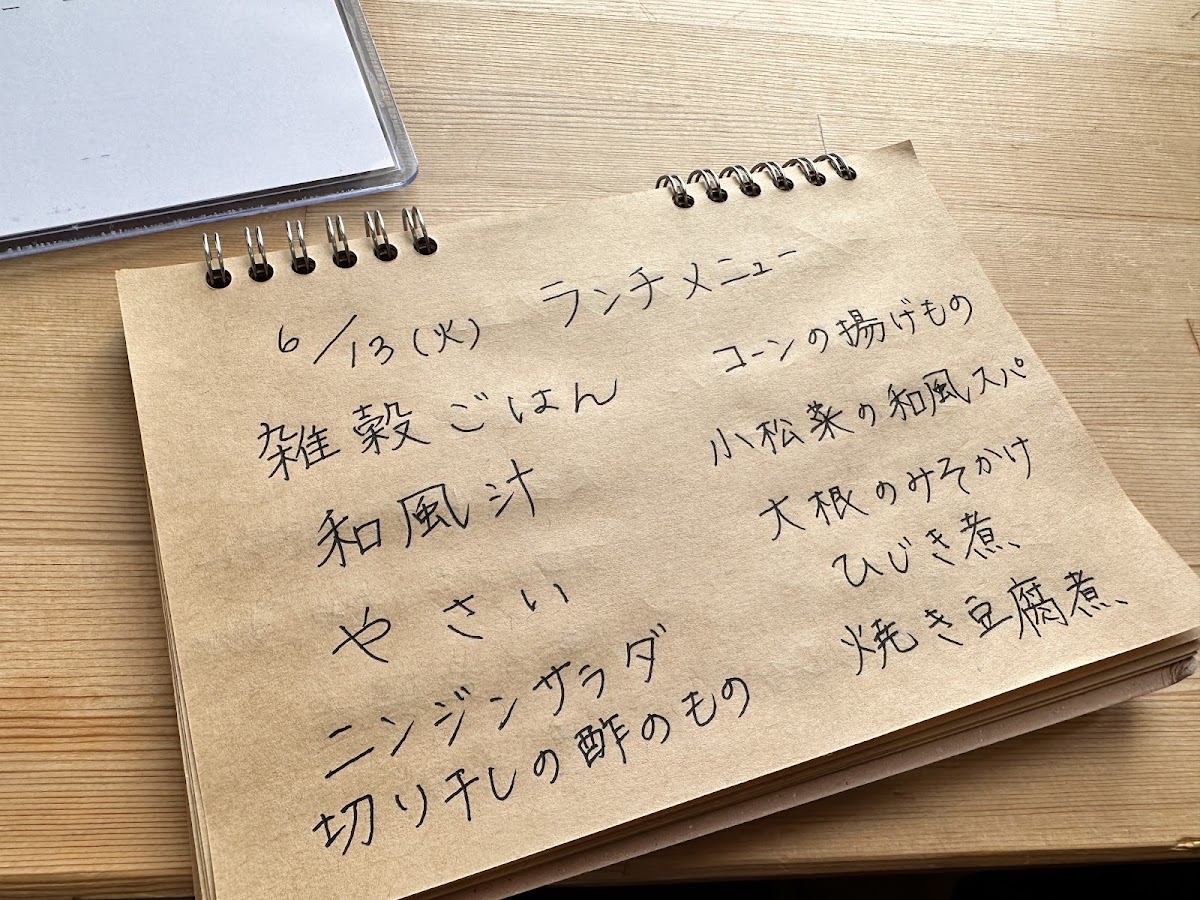 6/13(火) ランチメニュー
雑穀ごはん
和風汁
やさい
ニンジンサラダ
切り干しの酢のもの
コーンの揚げもの
小松菜の和風スパ
大根のみそかけ
ひじき煮、
焼き豆腐煮、